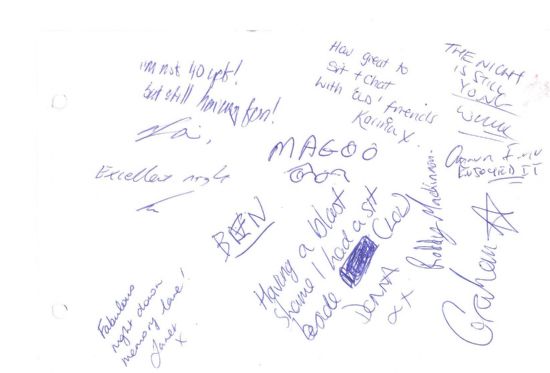 I'm not 40 yet!
but still having fun!
How great to
sit + chat
with old friends
Karina X.
THE NIGHT
IS STILL
YOUNG
MAGOO
Excellent night
ENJOYED IT
Having a blast
Shame I had a sit
beside (LOL)
JENNA
xx
Robby Mackinnon
Graham
Fabulous
night down
memory lane!
Janet
x